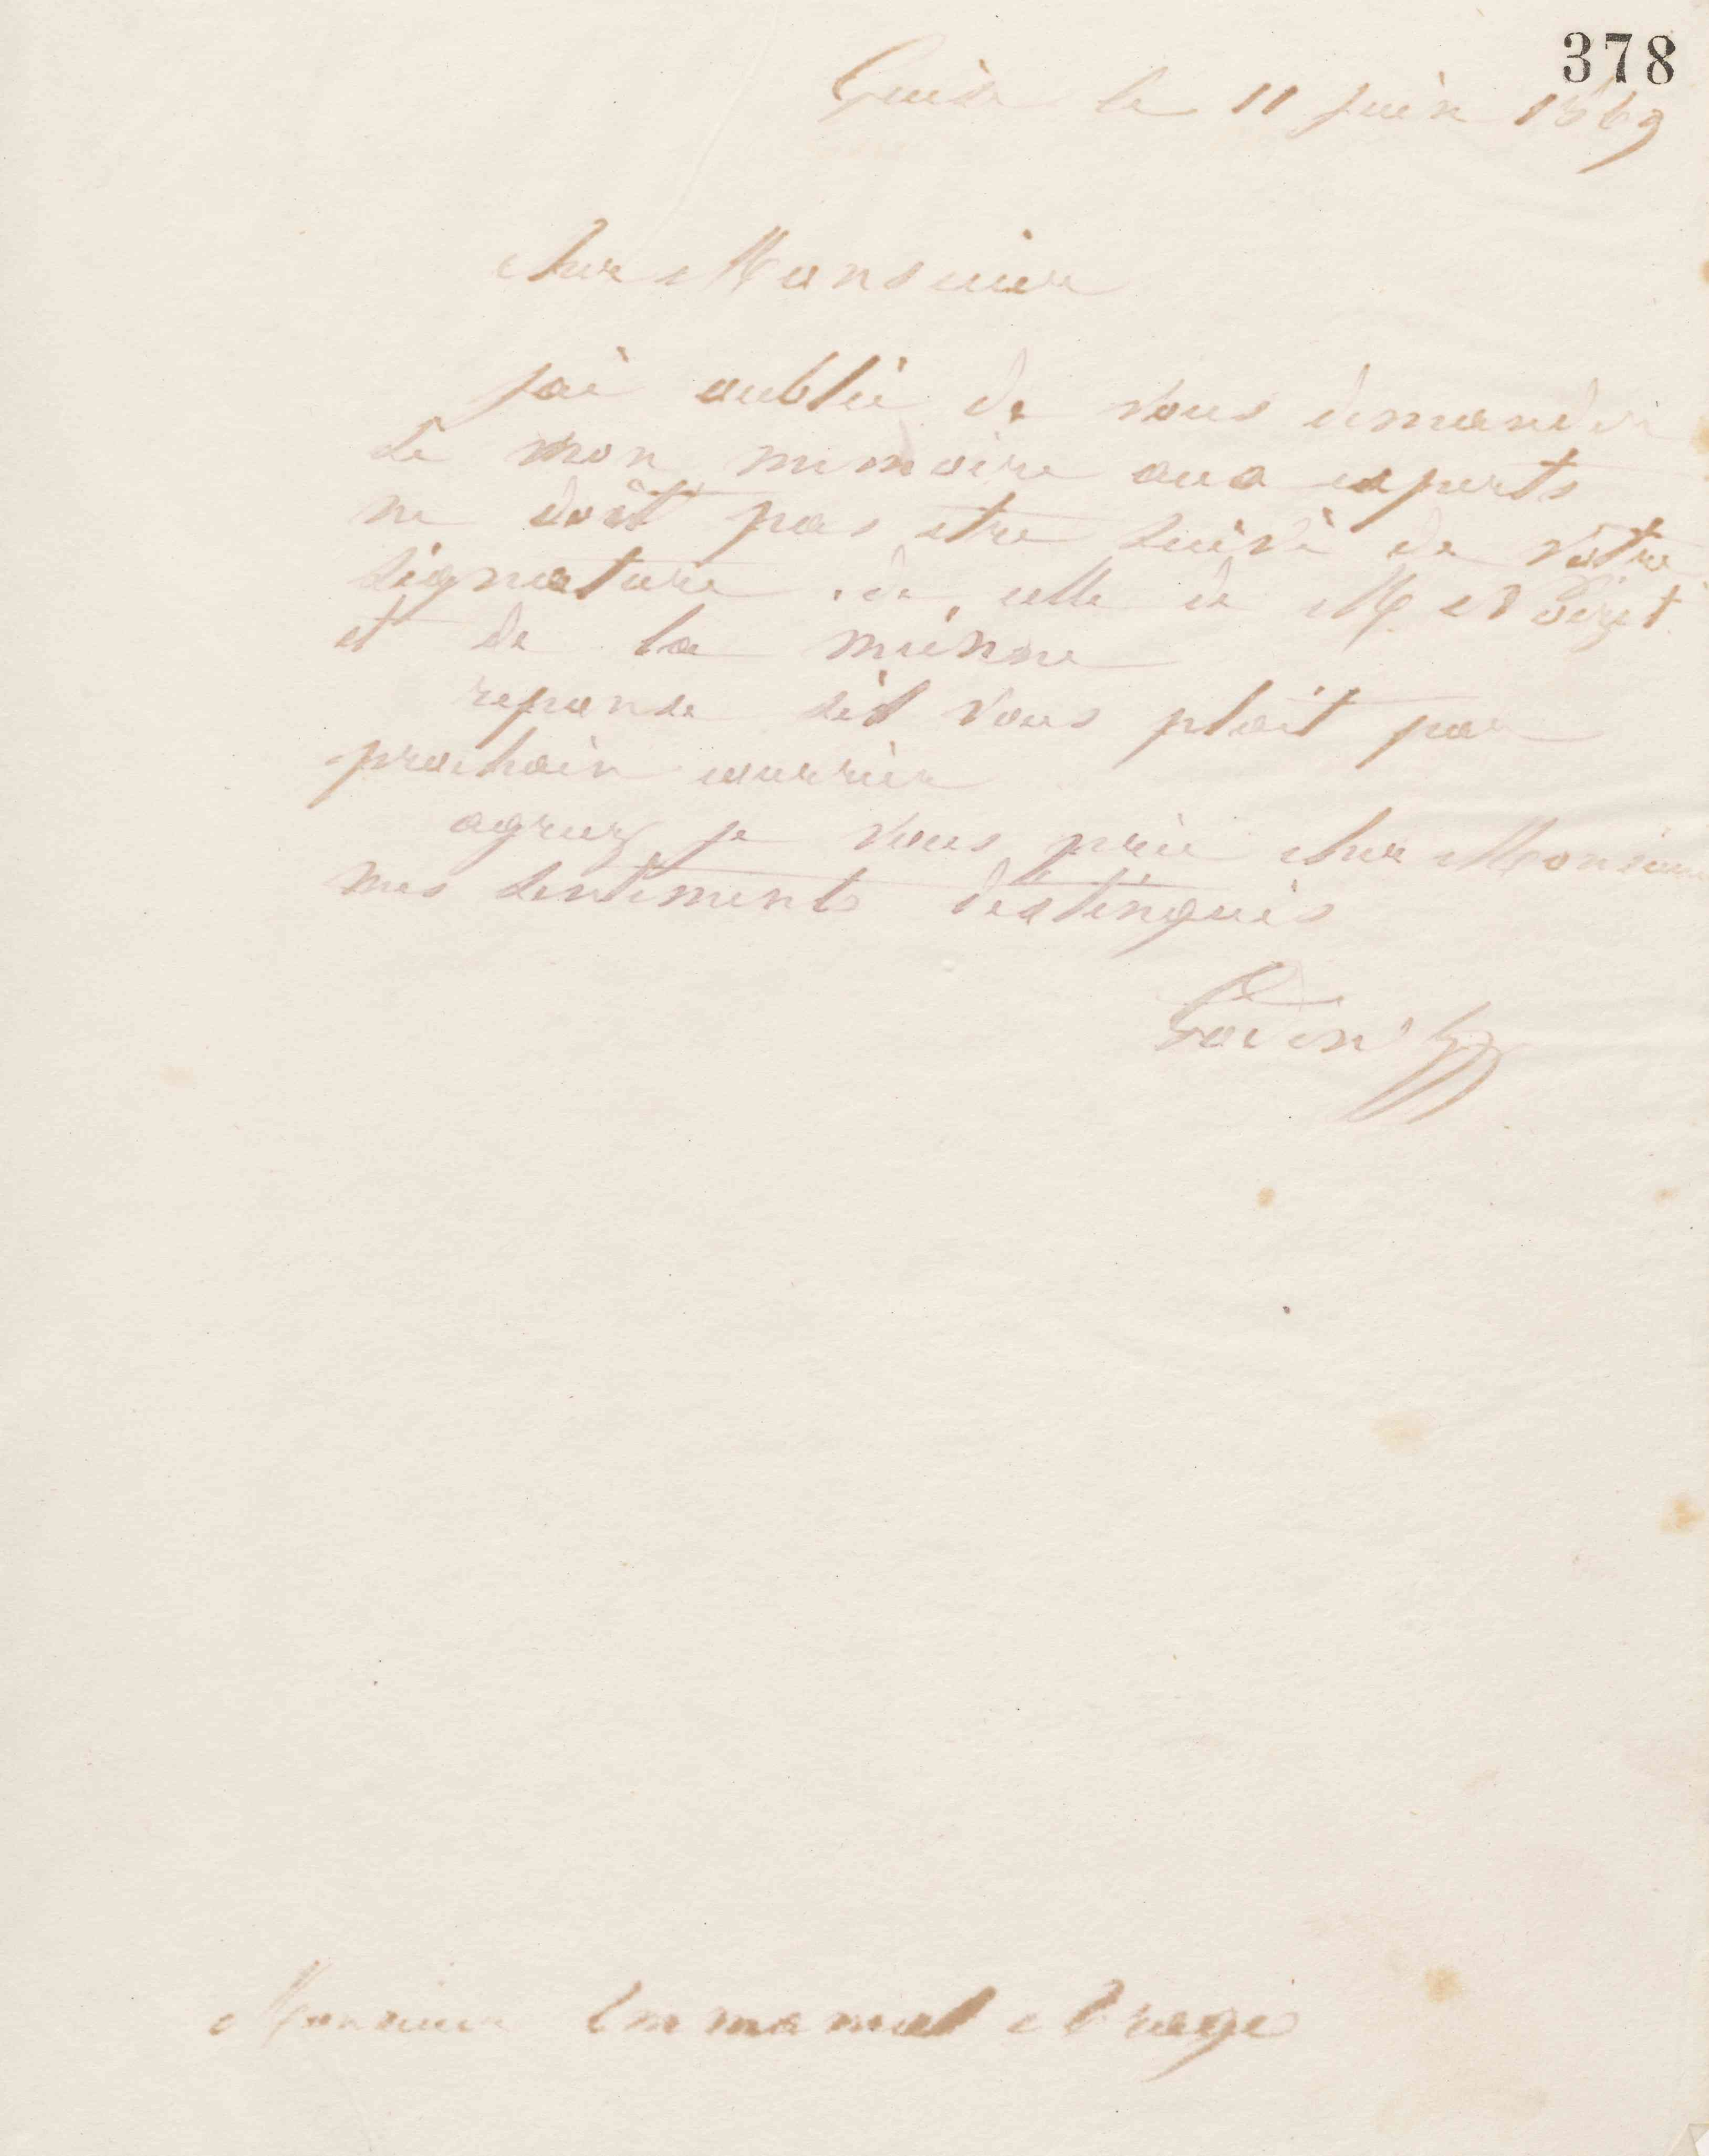 378
Guise le 11 juin 1869
cher Monsieur
j'ai oublié de vous demander
si mon mémoire aux experts
ne doit pas etre suivi de votre
signature, de celle de Me
et de la mienne
reponse s'il vous plait par
prochain courrier
agreez je vous prie cher Monsieur
mes sentiments distingués
Godin
Monsieur Emmanuel Arago